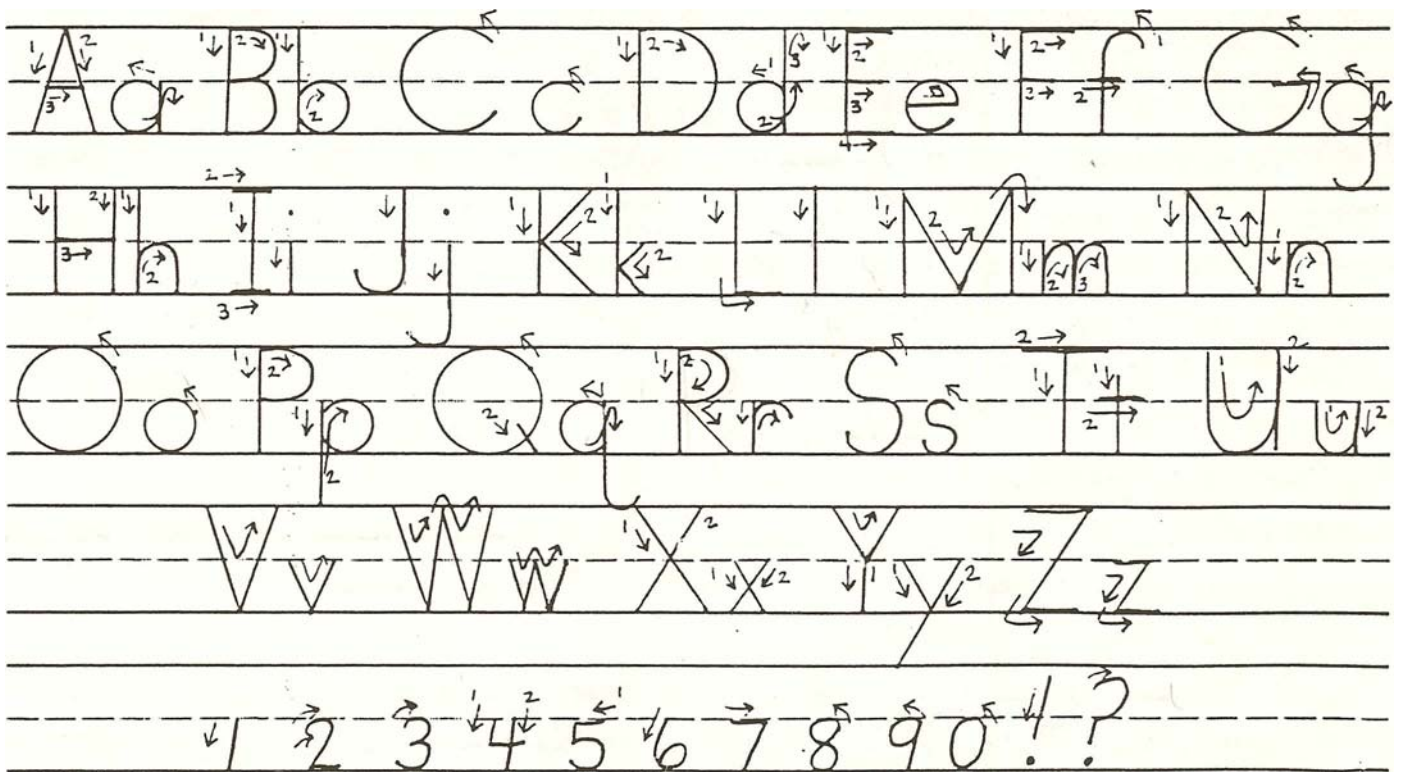 Aa Bb Cc Dd Ee Ff Gg
Hh Ii Jj Kk Ll Mm Nn
Oo Pp Qq Rr Ss Tt Uu
Vv Ww Xx Yy Zz
1 2 3 4 5 6 7 8 9 0 ! ?